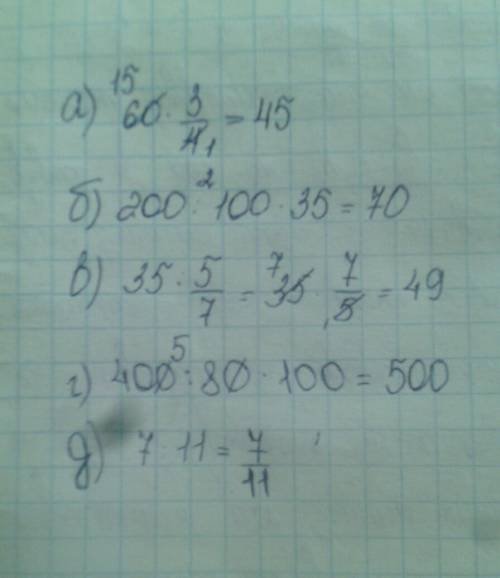 15
а) 60 · 3/4 1 = 45
2
б) 200 : 100 · 35 = 70
в) 35 : 5/7 = 7 35 · 7/5 1 = 49
5
г) 400 : 80 · 100 = 500
д) 7 : 11 = 7/11